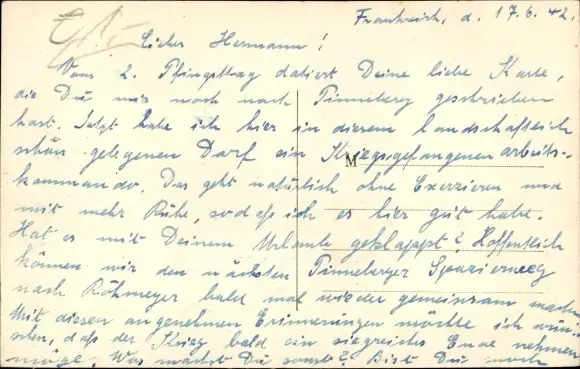 Frankreich, d. 17.6.42.
Lieber Hermann!
Vom 2. Pfingsttag datiert Deine liebe Karte,
die Du mir noch nach Pinneberg geschrieben
hast. Jetzt habe ich hier in diesem landschaftlich
schön gelegenen Dorf ein Kriegsgefangenenarbeits-
kommando. Das geht natürlich ohne Exerzieren und
mit mehr Ruhe, sodaß ich es hier gut habe.
Hat es mit Deinem Urlaub geklappt? Hoffentlich
können wir den nächsten Pinneberger Spazierweg
nach Röhmeyer bald mal wieder gemeinsam machen
Mit diesen angenehmen Erinnerungen möchte ich wün-
schen, daß der Krieg bald ein siegreiches Ende nehmen
möge. Was machst Du sonst? Bist Du noch
M